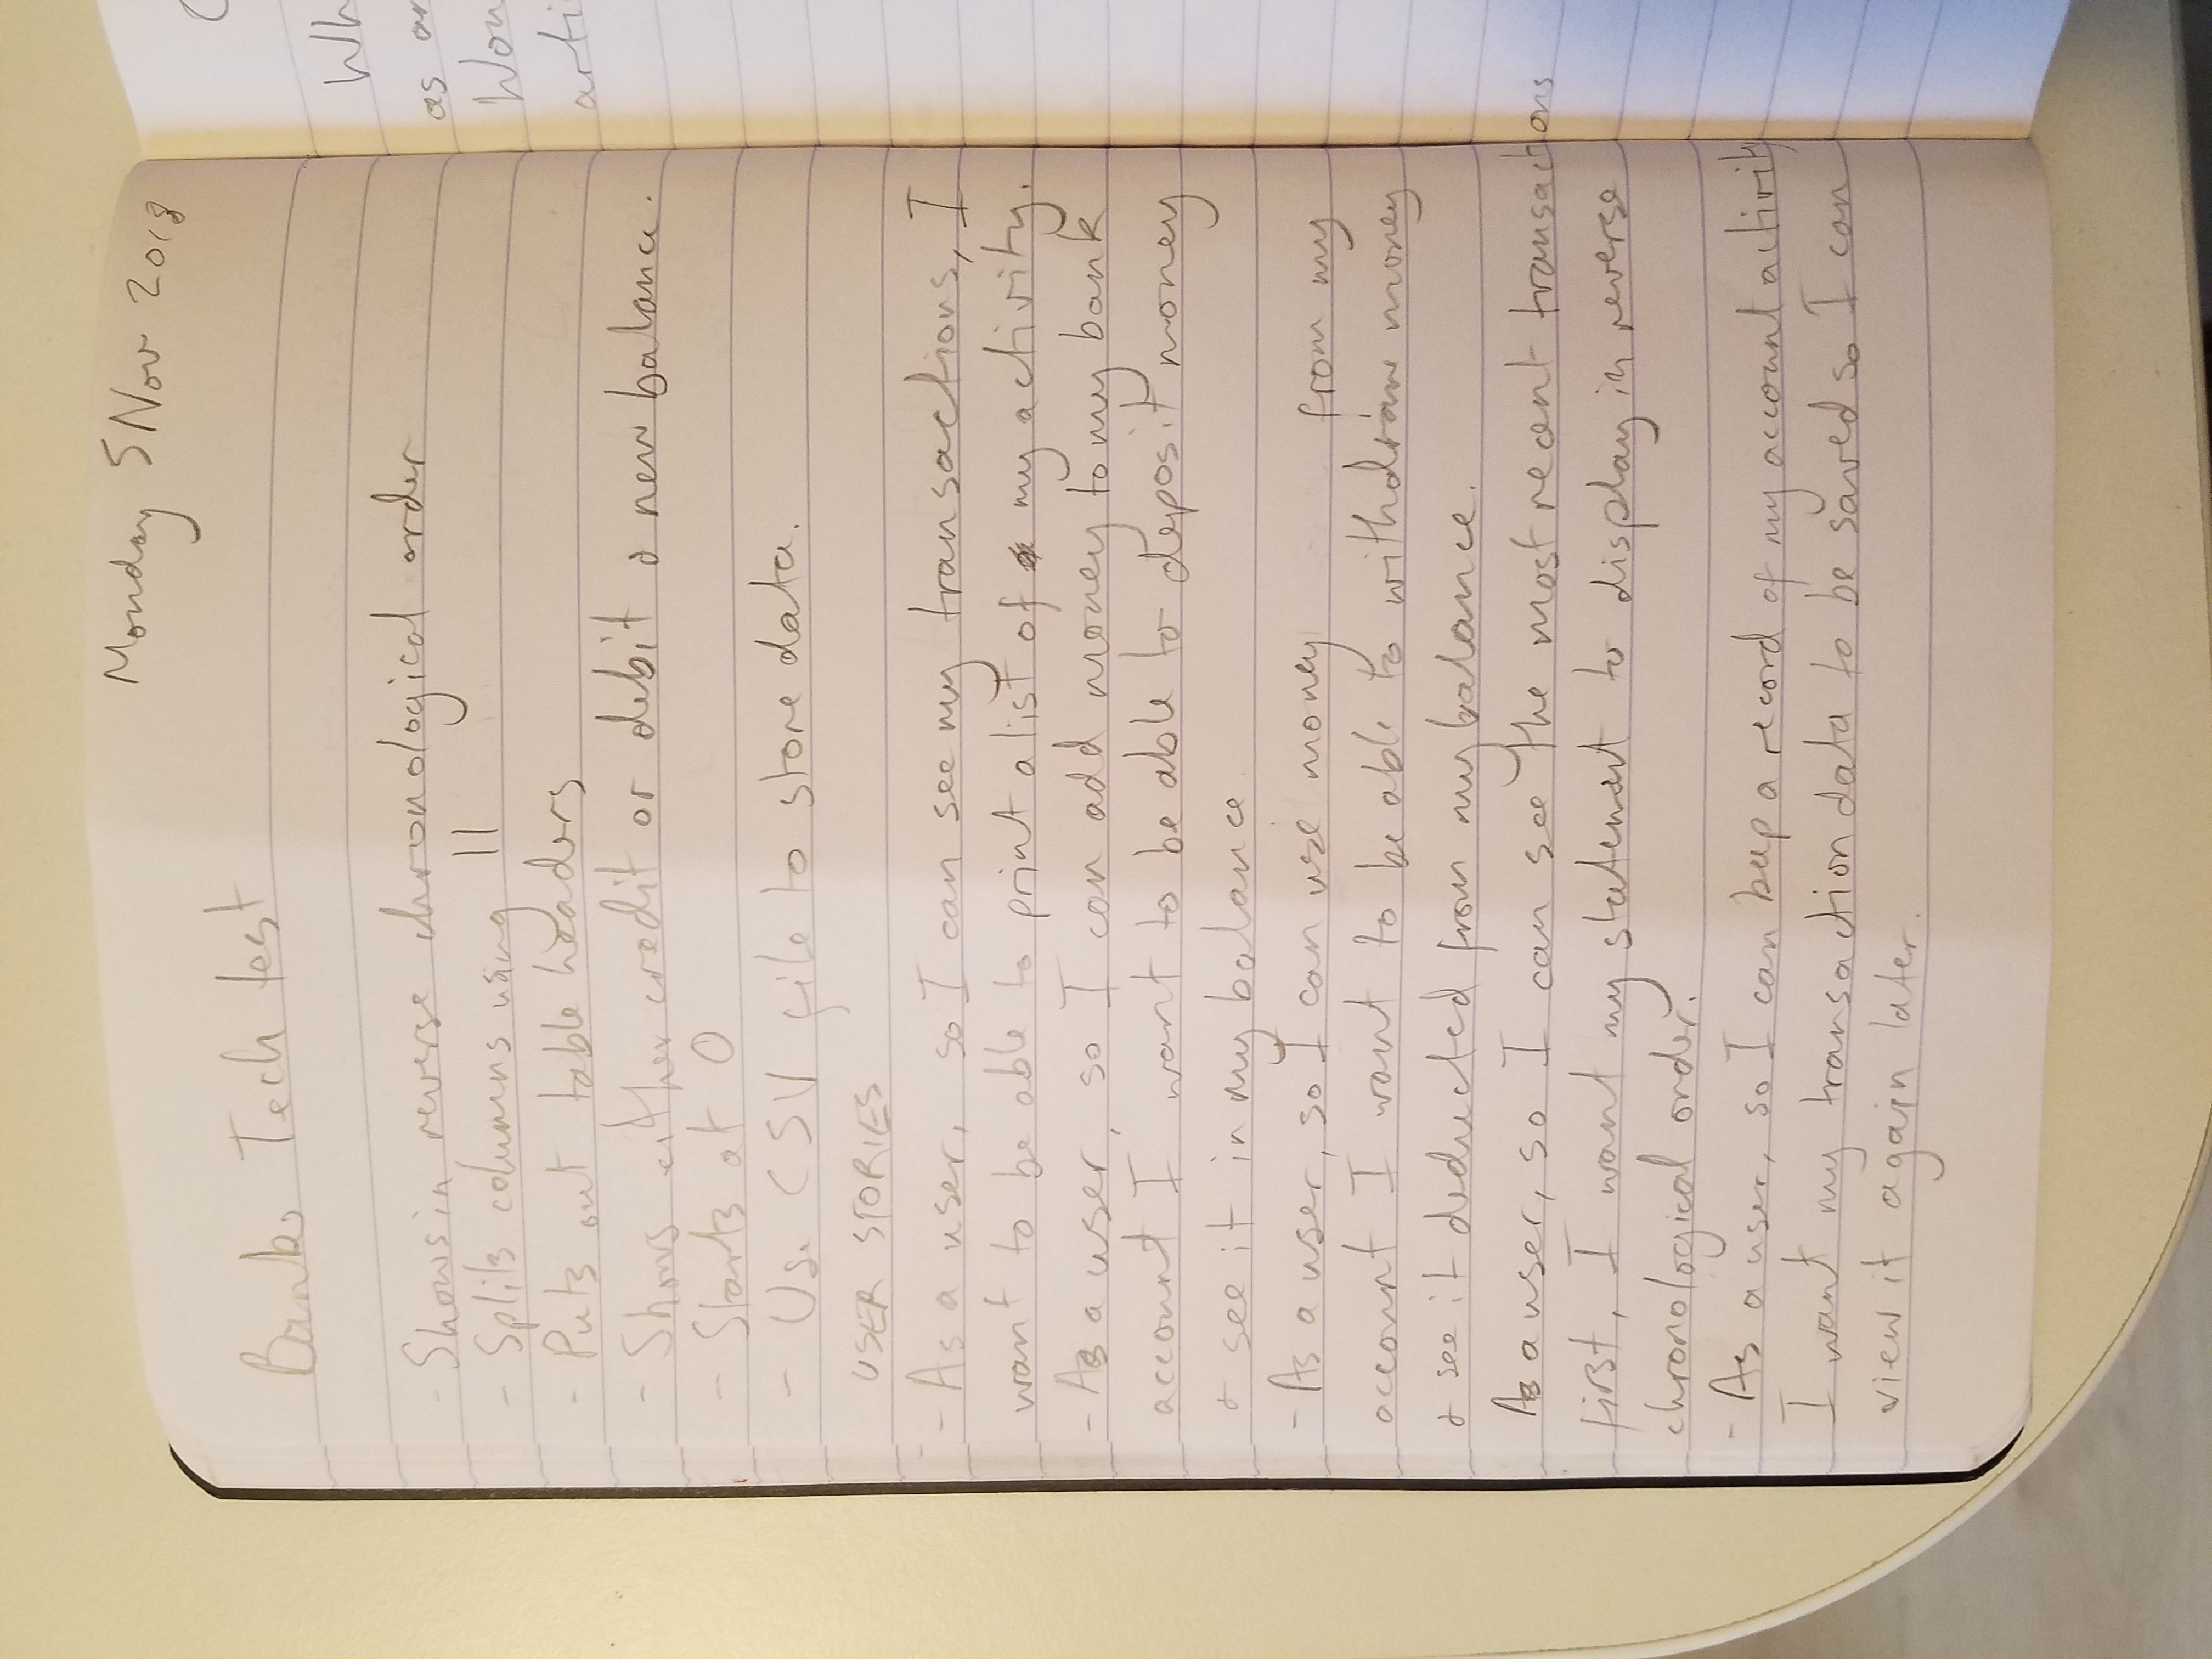 Monday 5 Nov 2018
Bank Tech test
- Shows in reverse chronological order
- Splits columns using ||
- Puts out table headers
- Shows either credit or debit & new balance.
- Starts at 0
- Use CSV file to store data.
USER STORIES
- As a user, so I can see my transactions, I
want to be able to print a list of my activity.
- As a user, so I can add money to my bank
account I want to be able to deposit money
& see it in my balance.
- As a user, so I can use money from my
account I want to be able to withdraw money
& see it deducted from my balance.
As a user, so I can see the most recent transactions
first, I want my statement to display in reverse
chronological order.
- As a user, so I can keep a record of my account activity
I want my transaction data to be saved so I can
view it again later.
Wh
as
Wou
arti